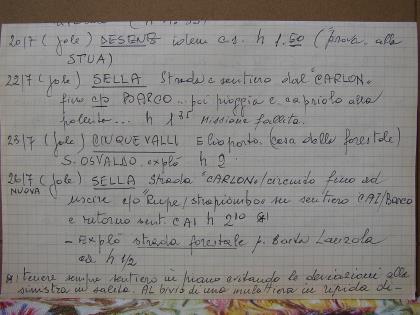 20/7 (Jole) DESENE idem c.s. h 1.50 (prova alla
STUA)
22/7 (Jole) SELLA Strada e sentiero dal "CARLON"
fino c/o BARCO... poi pioggia e capriolo alla
polenta... h 1 35 Missione fallita.
23/7 (Jole) CINQUEVALLI Elioporto (casa della forestale)
S. OSVALDO explò h 2
26/7 (Jole) SELLA Strada "CARLON"/circuito fino ad
NUOVA uscire c/o "Rupe/strapiombo" su sentiero CAI/Barco
e ritorno sent. CAI h 2 10
- Explò strada forestale p. Baita Lanzola
h 1/2
tenere sempre sentiero in piano evitando le deviazioni alla
sinistra in salita. Al bivio di una mulattiera in ripida di-